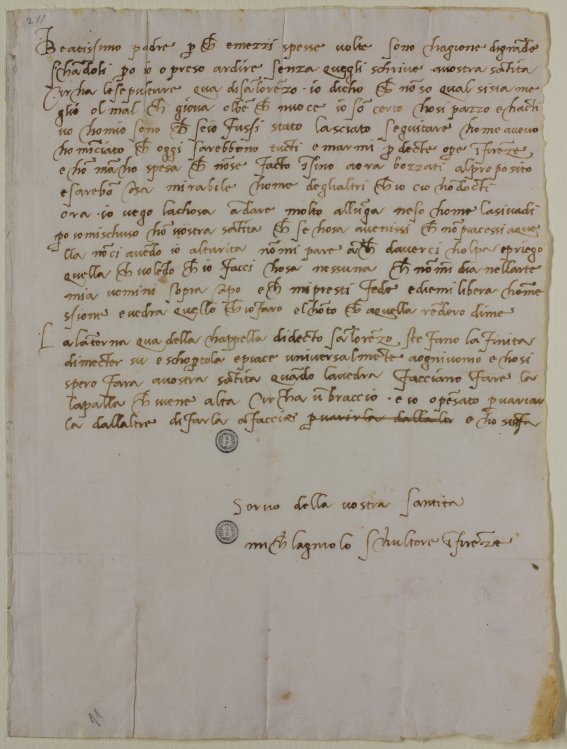 211
Beatissimo padre p ch e mezzi spesse volte sono chagione di grāde
schādoli po io o preso ardire senza quegli schrivere a vostra sātita
circha le sepulture qua di sā lorēzo · io dicho ch nō so qual si sia me
glio ol mal ch giova ol bē ch nuoce io sō certo chosi pazzo e chacti
vo chome sono ch se io fussi stato lasciato seguitare chome avevo
chomīciato ch oggi sarebbono tucti e marmi p decte opere ī firenze
e chō mācho spesa ch nō se facto ī sino a ora bozzati al proposito
e sarebō chosa mirabile chome degli altri ch io ci o chōdocti
ora · io vego la chosa ādare molto alla lūga ne so chome la si vadi
po io mi schuso cho vostra sātita ch se chosa avenissi ch nō piacessi a que
lla nō ci avēdo io alturita nō mi pare āch d averci cholpa e priego
quella ch volēdo ch io facci chosa nessuna ch nō mi dia nell arte
mia uomini sopra chapo e ch mi presti fede e diemi libera chōme
ssione e vedra quello ch io faro e l chōto ch a quella rēdero di me
La lāterna qua della chappella di decto sā lorēzo stefano la finita
di mecter su e schopertola e piace universalmēte a ogni uomo e chosi
spero fara a vostra sātita quādo la vedra facciāno fare la
la palla ch viene alta circha ū braccio · e io o pēsato p variar
la dall altre di farla a faccie p variarla dall altre e chosi si fa
Servo della vostra santita
michelagniolo schultore ī firenze
11